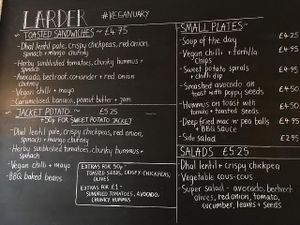 LARDER #VEGANUARY
TOASTED SANDWICHES ~ £4.75
- Dhal lentil pate, crispy chickpeas, red onion,
spinach + mango chutney
- Herby sunblushed tomatoes, chunky hummus +
spinach
- Avocado, beetroot, coriander + red onion
chutney
- Vegan chilli + mayo
- Caramelised banana, peanut butter + jam
JACKET POTATO ~ £5.25
+50p FOR SWEET POTATO JACKET
- Dhal lentil pate, crispy chickpeas, red onion,
spinach + mango chutney
- Herby sunblushed tomatoes, chunky hummus +
spinach
- Vegan chilli + mayo
- BBQ baked beans
EXTRAS FOR 50p -
TOASTED SEEDS, CRISPY CHICKPEAS,
OLIVES
EXTRAS FOR £1 -
SUNDRIED TOMATOES, AVOCADO,
CHUNKY HUMMUS
SMALL PLATES~
- Soup of the day £4.25
- Vegan chilli + tortilla
chips £4.95
- Sweet potato spirals
+ chilli dip £4.25
- Smashed avocado on
toast with poppy seeds £4.50
- Hummus on toast with
tomato + toasted seeds £4.50
- Deep fried mac n' pea balls
+ BBQ sauce £4.95
- Side salad £2.95
SALADS £5.25
- Dhal lentil + crispy chickpea
- Vegetable cous-cous
- Super salad - avocado, beetroot
olives, red onion, tomato,
cucumber, leaves + seeds